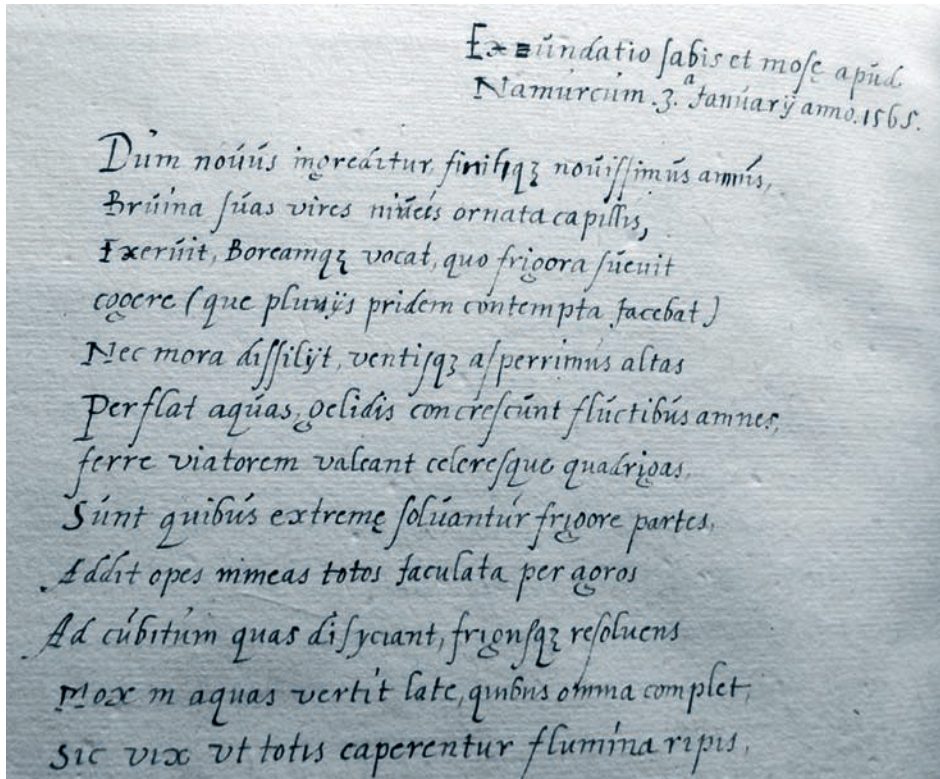 Exundatio sabis et mosę apud
Namurcum .3.ª Januarij anno. 1565.
Dum nouus ingreditur, finitiqꝫ nouissimus annus,
Bruina suas vires niueis ornata capillis,
Exeruit, Boreamqꝫ vocat, quo frigora sueuit
cogere (que pluuijs pridem contempta Jacebat)
Nec mora dissilijt, ventisqꝫ asperrimus altas
Perflat aquas, gelidis concrescunt fluctibus amnes,
ferre viatorem valeant celeresque quadrigas.
Sunt quibus extremę soluantur frigore partes,
Addit opes nimeas totos Jaculata per agros
Ad cubitum quas disyciant, frigusqꝫ resoluens
Mox in aquas vertit late, quibus omnia complet,
Sic vix vt totis caperentur flumina ripis,